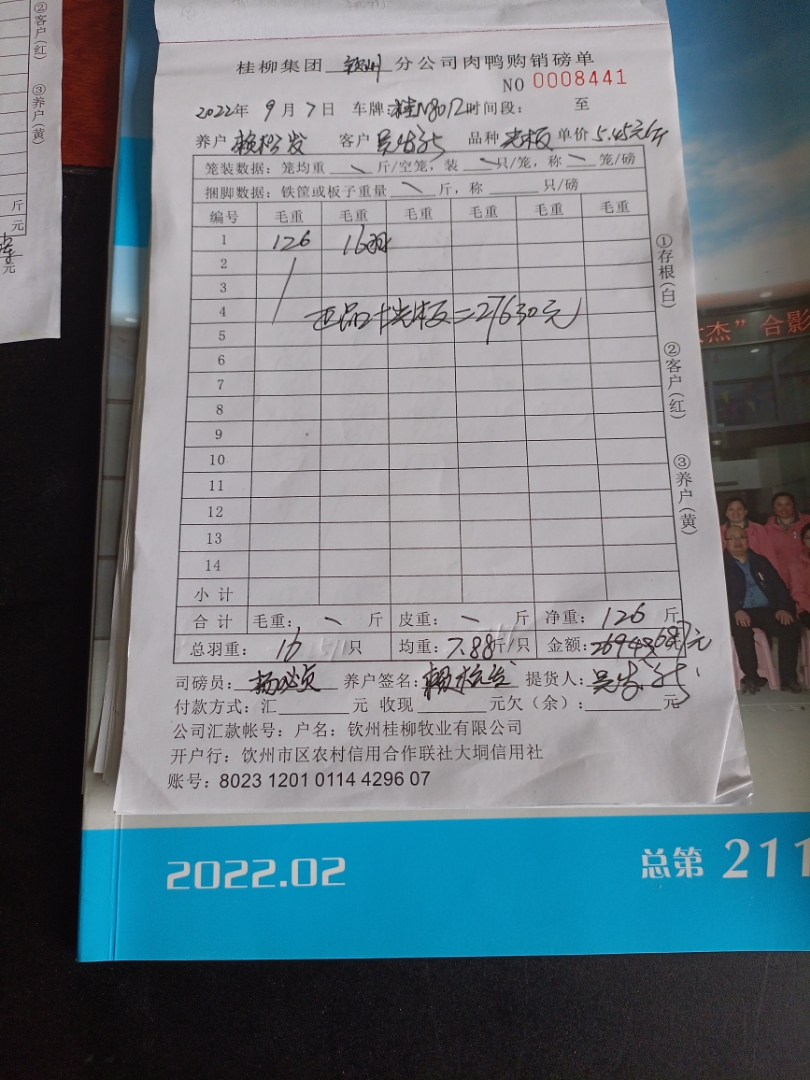 桂柳集团 钦州 分公司肉鸭购销磅单
NO 0008441
2022年 9 月 7 日 车牌: 时间段: 至
养户 客户 品种 光板 单价 5.45元/斤
笼装数据: 笼均重 斤/空笼, 装 只/笼, 称 笼/磅
捆脚数据: 铁筐或板子重量 斤, 称 只/磅
编号 毛重 毛重 毛重 毛重 毛重 毛重
1 126 16羽
2
3
4 正品+光板=27630元
5
6
7
8
9
10
11
12
13
14
小计
合计 毛重: 斤 皮重: 斤 净重: 126 斤
总羽重: 16 只 均重: 7.88斤/只 金额: 687元
司磅员: 养户签名: 提货人:
付款方式: 汇 元 收现 元欠(余): 元
公司汇款帐号: 户名: 钦州桂柳牧业有限公司
开户行: 饮州市区农村信用合作联社大垌信用社
账号: 8023 1201 0114 4296 07
①存根(白)
②客户(红)
③养户(黄)
②客户(红)
③养户(黄)
斤
元
元
杰”合影
2022.02
总第 211